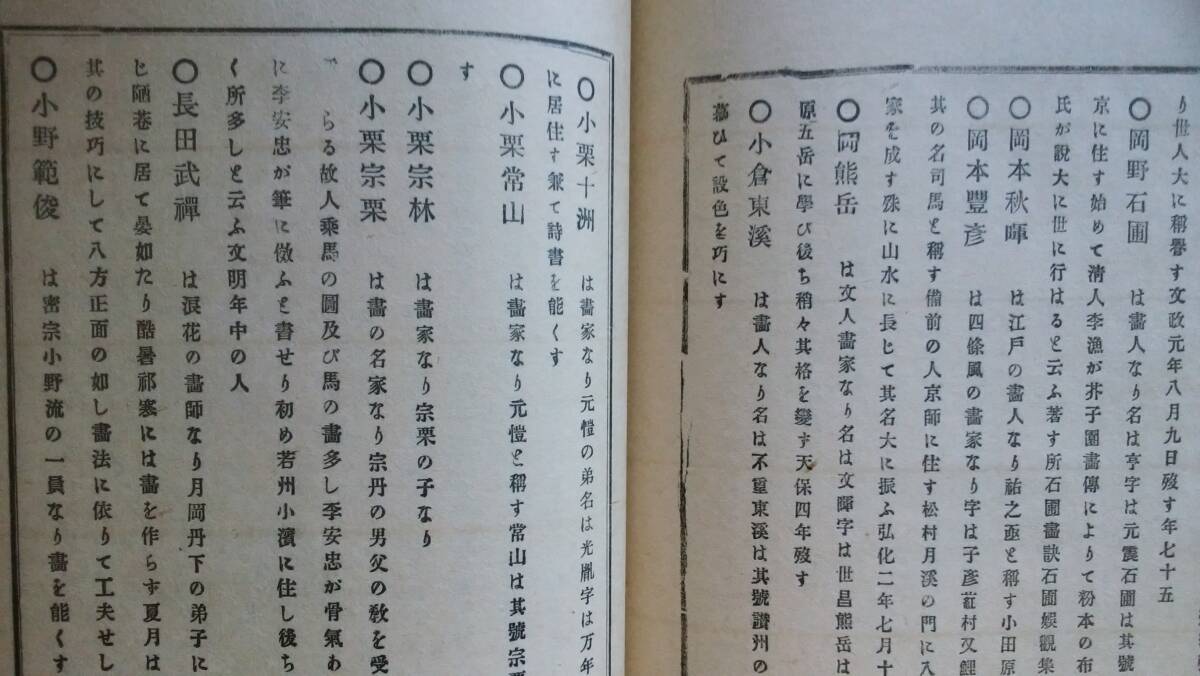 り世人大に稱譽す文政元年八月九日歿す年七十五
〇岡野石圃　は畫人なり名は亨字は元震石圃は其號
京に住す始めて淸人李漁が芥子園畫傳によりて粉本の布
氏が說大に世に行はると云ふ著す所石圃畫訣石圃娯観集
〇岡本秋暉　は江戸の畫人なり祐之亟と稱す小田原
〇岡本豐彦　は四條風の畫家なり字は子彦紅村又鯉
其の名司馬と稱す備前の人京師に住す松村月溪の門に入
家を成す殊に山水に長じて其名大に振ふ弘化二年七月十
〇岡熊岳　は文人畫家なり名は文暉字は世昌熊岳は
原五岳に學び後ち稍々其格を變す天保四年歿す
〇小倉東溪　は畫人なり名は不重東溪は其號讃州の
慕ひて設色を巧にす
〇小栗十洲　は畫家なり元愷の弟名は光胤字は万年
に居住す兼て詩書を能くす
〇小栗常山　は畫家なり元愷と稱す常山は其號宗栗
す
〇小栗宗林　は畫家なり宗栗の子なり
〇小栗宗栗　は畫の名家なり宗丹の男父の敎を受
らる故人乘馬の圖及び馬の畫多し李安忠が骨氣あ
に李安忠が筆に倣ふと書せり初め若州小濱に住し後ち
く所多しと云ふ文明年中の人
〇長田武禪　は浪花の畫師なり月岡丹下の弟子に
じ陋巷に居て晏如たり酷暑祁寒には畫を作らず夏月は
其の技巧にして八方正面の如し畫法に依りて工夫せし
〇小野範俊　は密宗小野流の一員なり畫を能くす